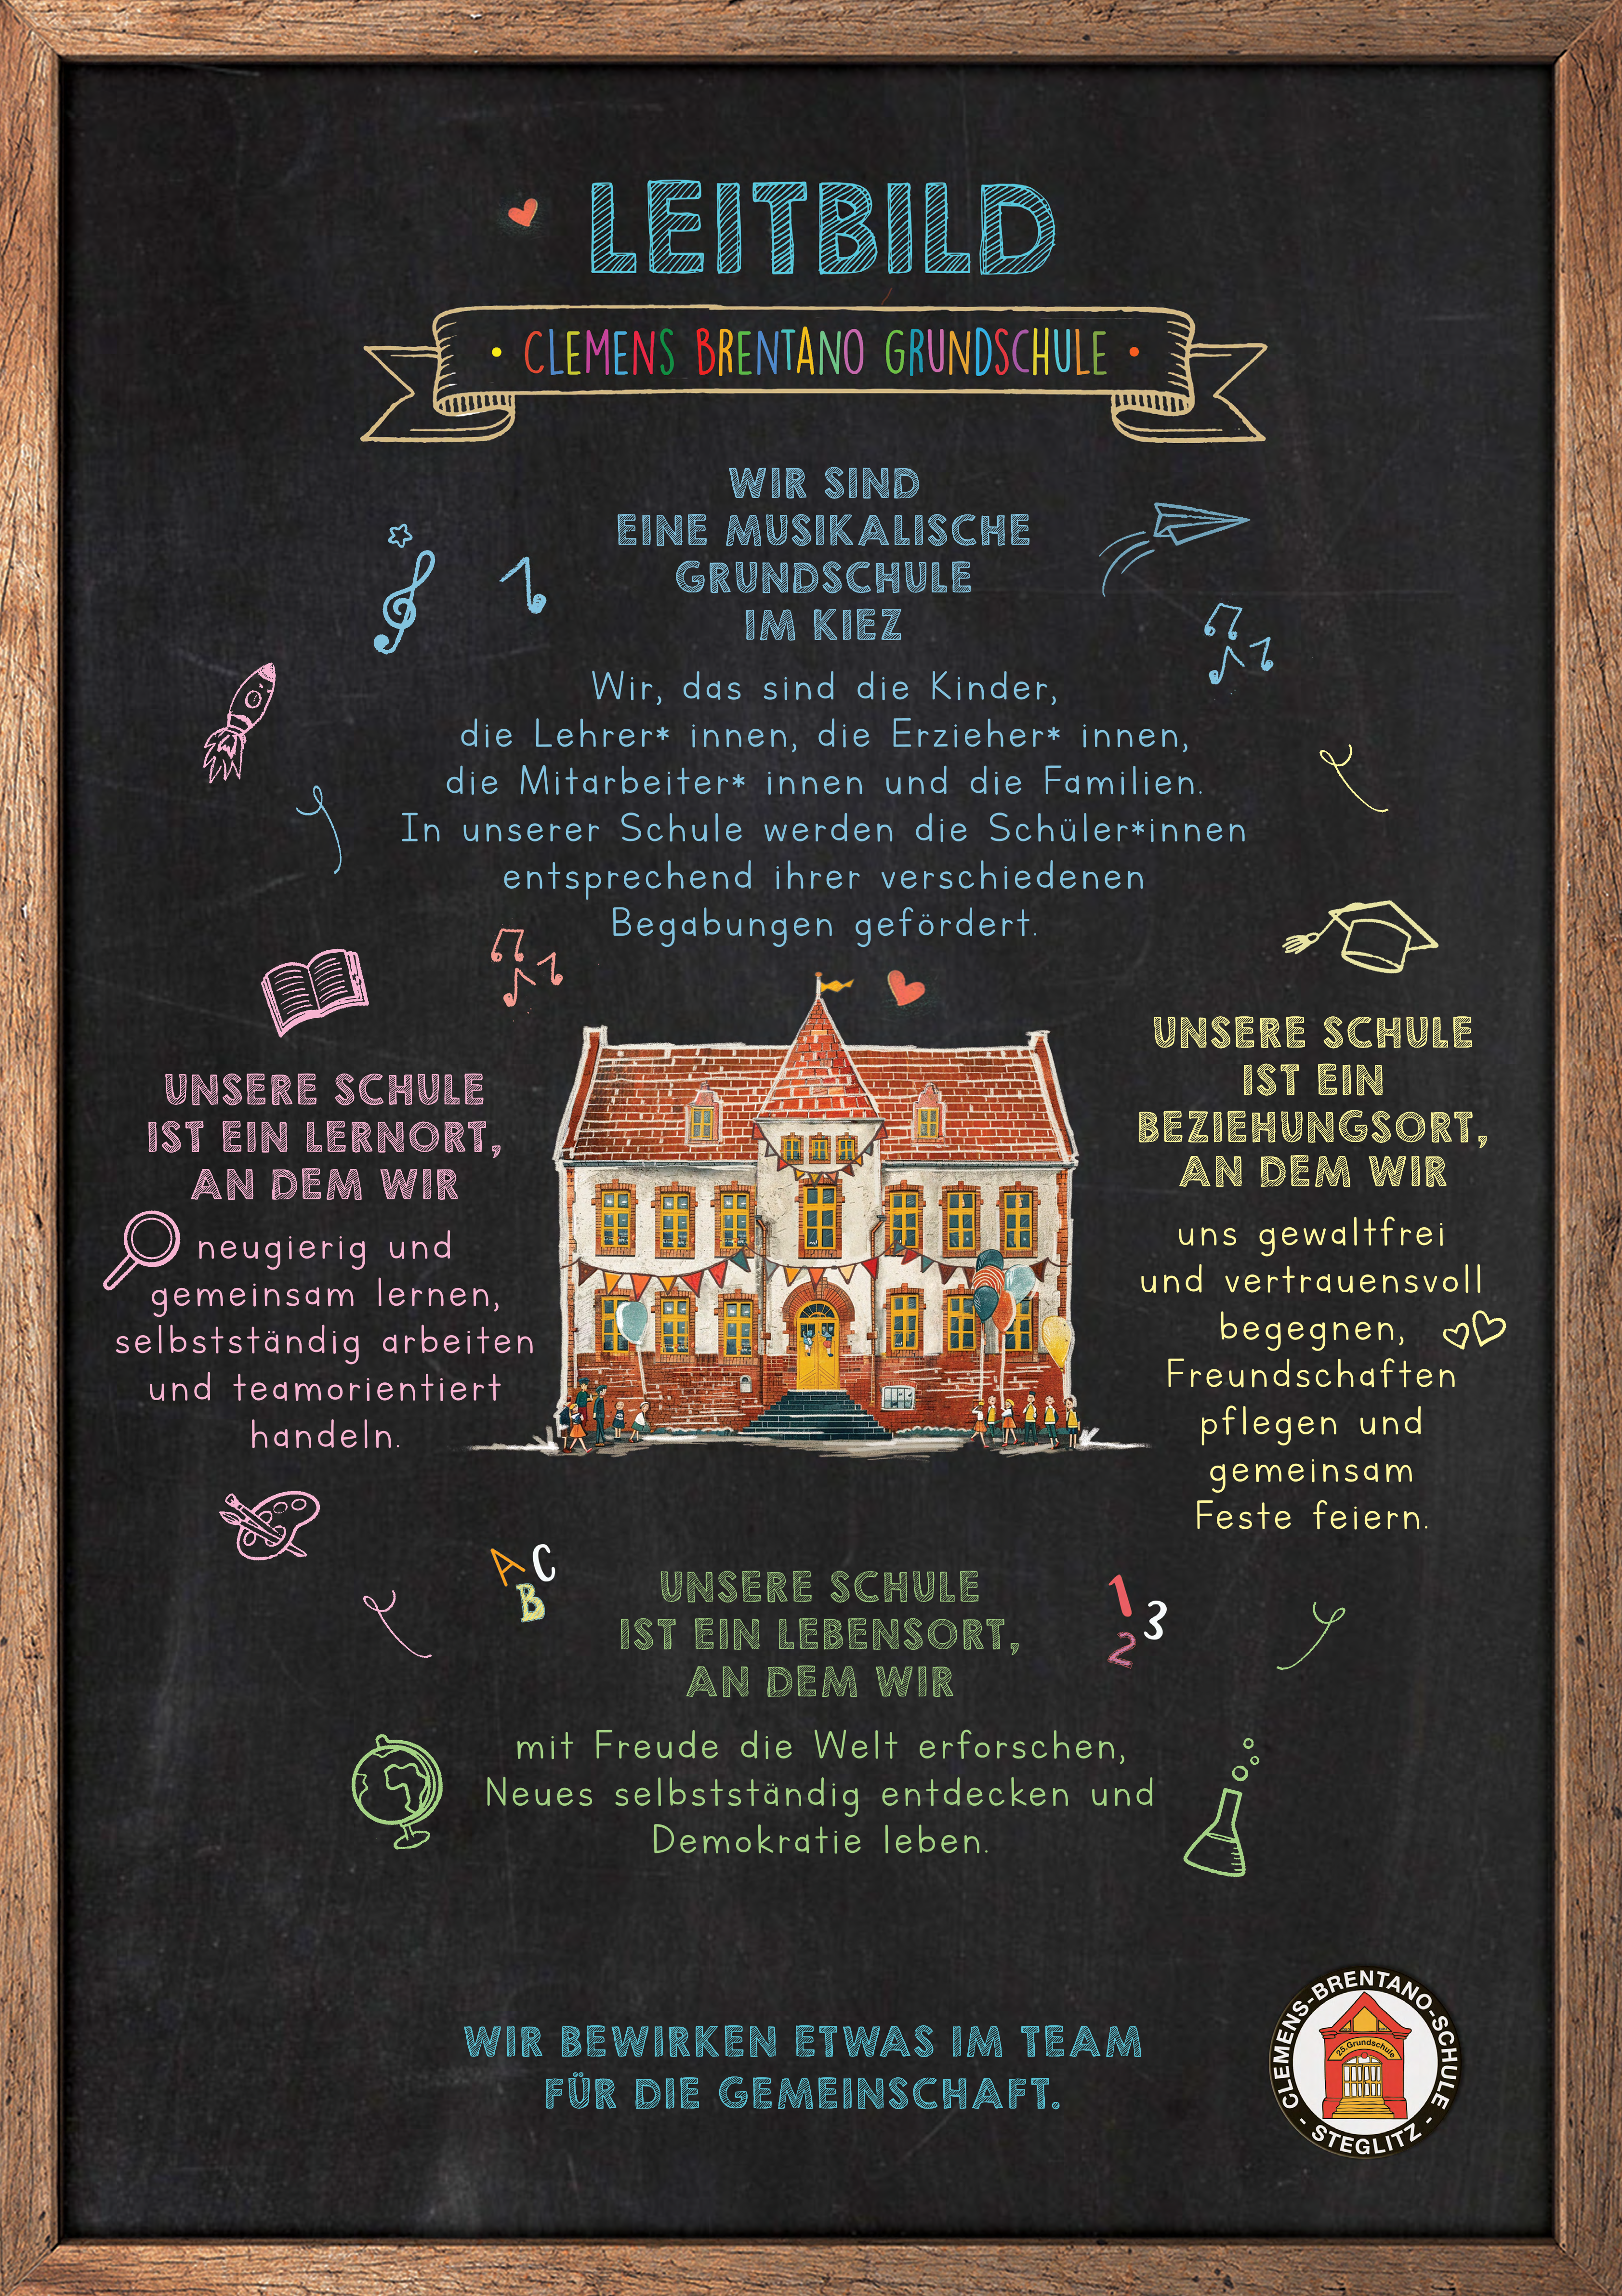 LEITBILD
• CLEMENS BRENTANO GRUNDSCHULE •
WIR SIND
EINE MUSIKALISCHE
GRUNDSCHULE
IM KIEZ
Wir, das sind die Kinder,
die Lehrer* innen, die Erzieher* innen,
die Mitarbeiter* innen und die Familien.
In unserer Schule werden die Schüler*innen
entsprechend ihrer verschiedenen
Begabungen gefördert.
UNSERE SCHULE
IST EIN LERNORT,
AN DEM WIR
neugierig und
gemeinsam lernen,
selbstständig arbeiten
und teamorientiert
handeln.
UNSERE SCHULE
IST EIN
BEZIEHUNGSORT,
AN DEM WIR
uns gewaltfrei
und vertrauensvoll
begegnen,
Freundschaften
pflegen und
gemeinsam
Feste feiern.
A C
B
1
3
2
UNSERE SCHULE
IST EIN LEBENSORT,
AN DEM WIR
mit Freude die Welt erforschen,
Neues selbstständig entdecken und
Demokratie leben.
WIR BEWIRKEN ETWAS IM TEAM
FÜR DIE GEMEINSCHAFT.
CLEMENS-BRENTANO-SCHULE
25. Grundschule
- STEGLITZ -